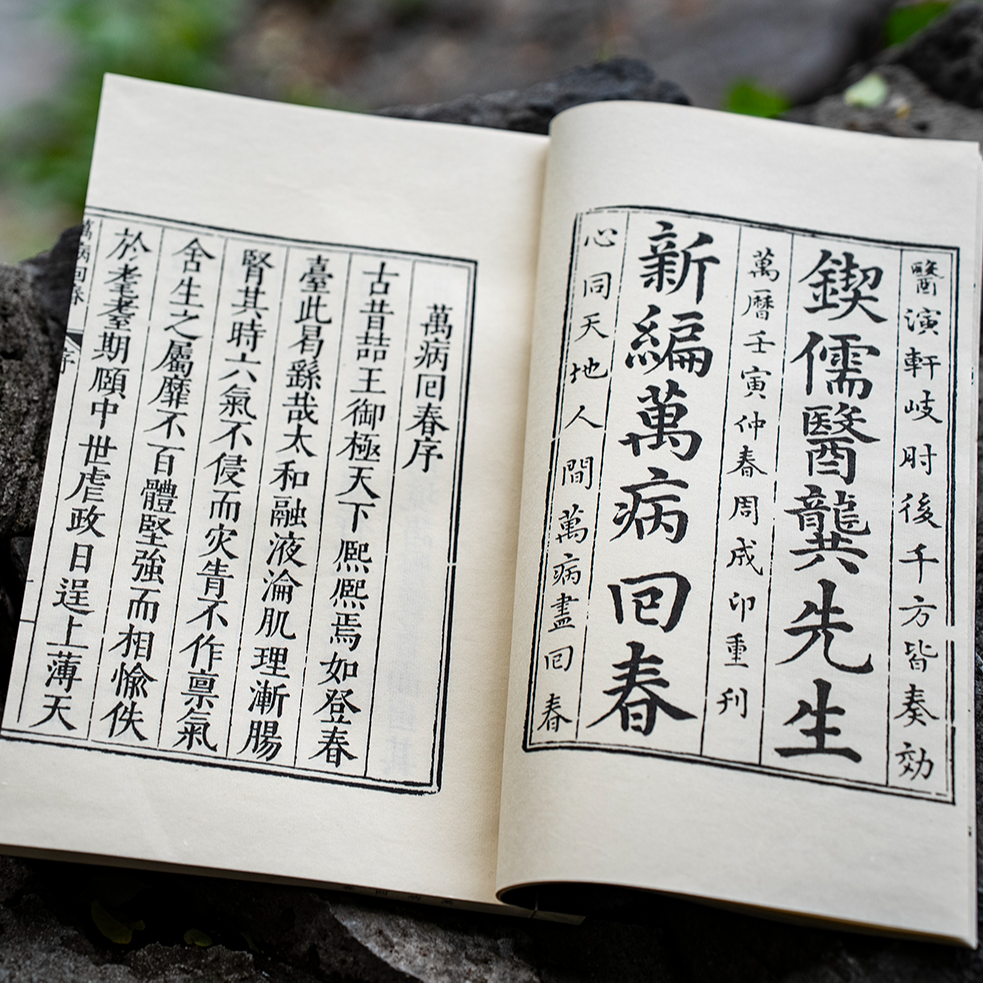 醫演軒岐肘後千方皆奏効
鍥儒醫龔先生
萬曆壬寅仲春周成印重刊
新編萬病回春
心同天地人間萬病盡回春
萬病回春序
古昔喆王御極天下熈熈焉如登春
臺此曷繇哉太和融液淪肌理漸腸
腎其時六氣不侵而灾眚不作稟氣
含生之屬靡不百體堅強而相愉佚
於耄耋期頤中世虐政日逞上薄天
萬病回春
序